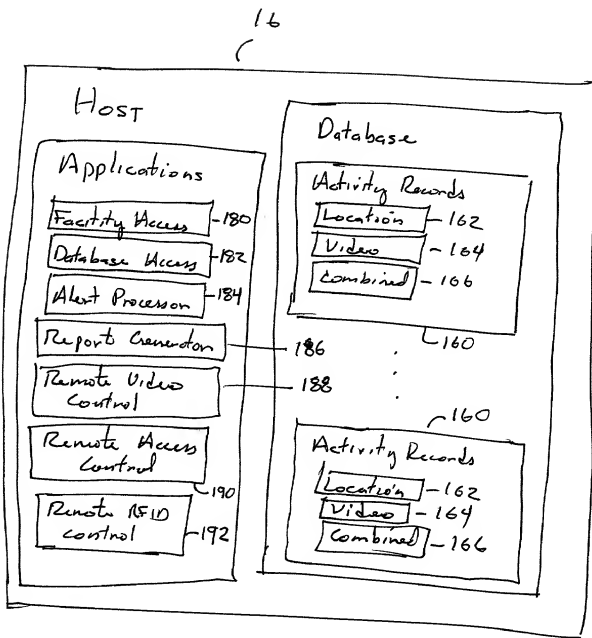 16
Host
Applications
Facility Access - 180
Database Access - 182
Alert Processor - 184
Report Generator - 186
Remote Video Control - 188
Remote Access Control
190
Remote RFID control - 192
Database
Activity Records
Location - 162
Video - 164
Combined - 166
160
160
Activity Records
Location - 162
Video - 164
Combined - 166